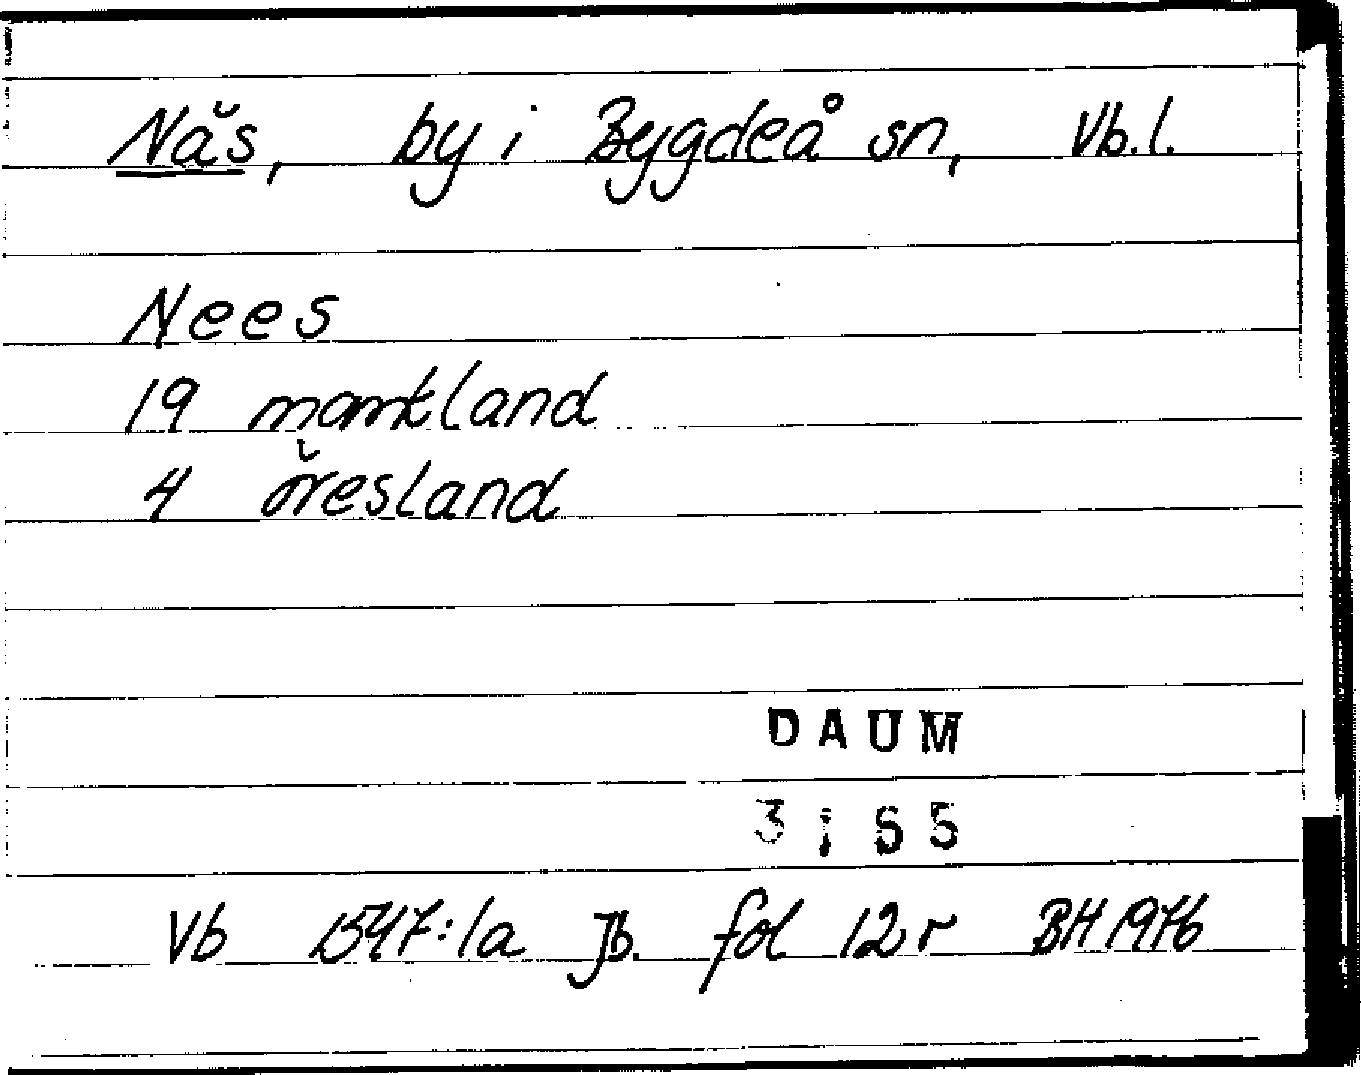 Näs, by i Bygdeå sn, Vb.l.
Nees
19 markland
4 öresland
DAUM
3:55
Vb 1547:1a Jb. fol 12r BH 1976